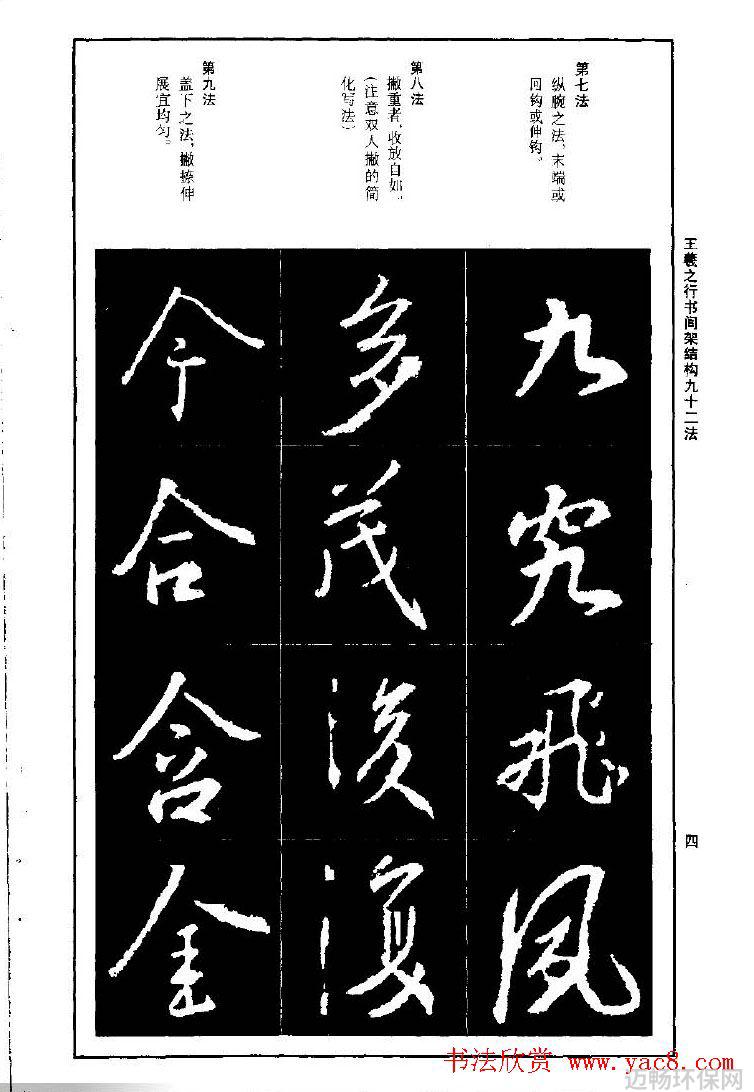 王羲之行书间架结构九十二法
四
第七法
纵腕之法，末端或
回钩或伸钩。
九
究
飛
風
第八法
撇重者，收放自如。
（注意双人撇的简
化写法）
多
茂
後
復
第九法
盖下之法，撇捺伸
展宜均匀。
今
合
含
金
书法欣赏 www.yac8.com
迈畅环保网